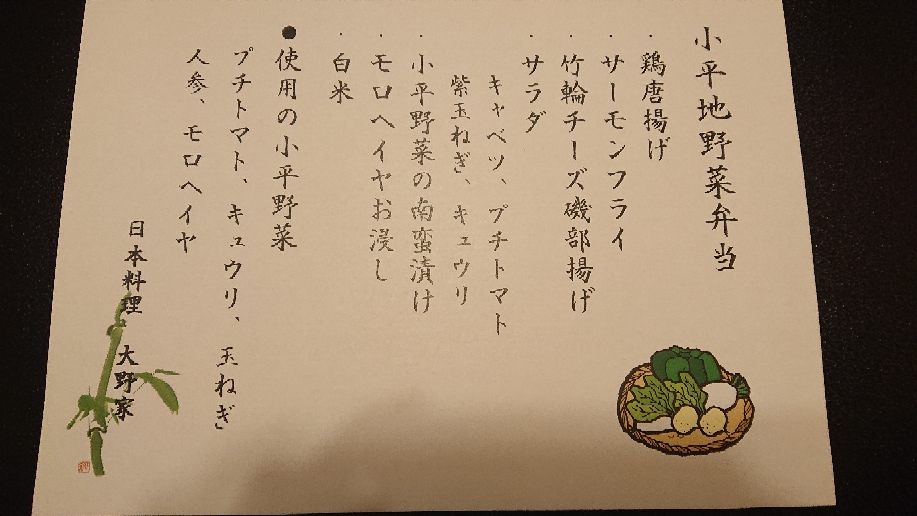 小平地野菜弁当
・鶏唐揚げ
・サーモンフライ
・竹輪チーズ磯部揚げ
・サラダ
キャベツ、プチトマト
紫玉ねぎ、キュウリ
・小平野菜の南蛮漬け
・モロヘイヤお浸し
・白米
●使用の小平野菜
プチトマト、キュウリ、玉ねぎ
人参、モロヘイヤ
日本料理 大野家